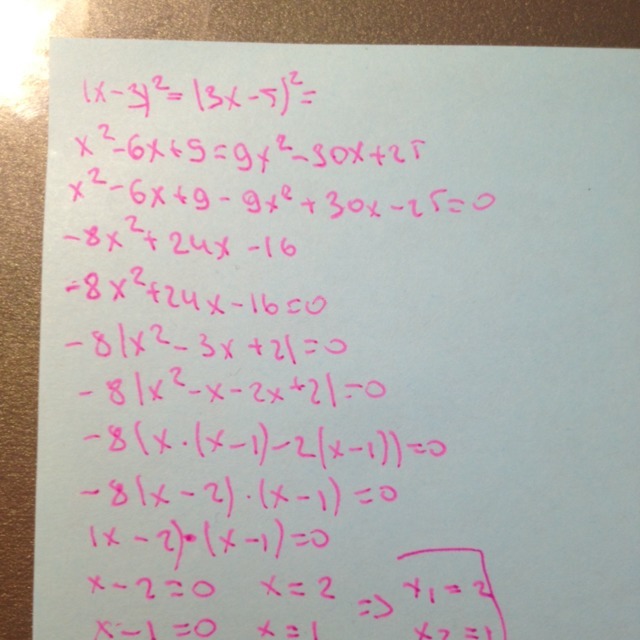 (x-3)²=(3x-5)²=
x²-6x+9=9x²-30x+25
x²-6x+9-9x²+30x-25=0
-8x²+24x-16
-8x²+24x-16=0
-8(x²-3x+2)=0
-8(x²-x-2x+2)=0
-8(x·(x-1)-2(x-1))=0
-8(x-2)·(x-1)=0
(x-2)·(x-1)=0
x-2=0 x=2 => x₁=2
x-1=0 x=1 x₂=1